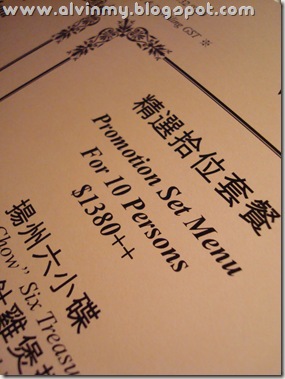 www.alvinmy.blogspot.com
GST ※
精選拾位套餐
Promotion Set Menu
For 10 Persons
$1380++
揚州六小碟
Chow" Six Treasu
雞煲